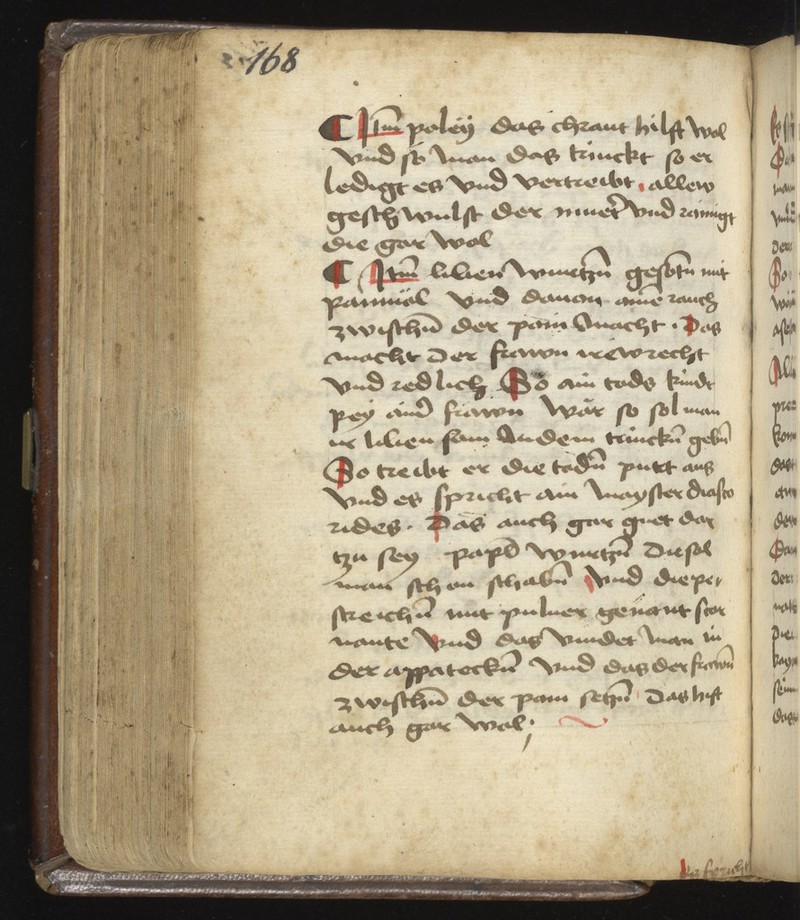 168
Itm̄ poleÿ das chraut hilft wol
vnd so man das trinckt so er
ledigt es vnd vertreibt allew
geschwulst der mueter vnd rainigt
die gar wol
Itm̄ lilien wurtzn̄ gesotn̄ mit
pāmöl vnd dauon ainē rauch
zwischn̄ der pain macht . Das
macht der frawn irew recht
vnd redlich So ain tods kindt
peÿ ainer frawn wär so sol man
ir lilien sam trinckn̄ gebn̄
So treibt er die todn̄ purt aus
vnd es spricht ain mayster diasco
rides . Das auch gar guet dar
tzu sey papel wurtzn̄ Die sol
man schon schabn̄ vnd die pe
streichn̄ mit puluer genant scor
nante vnd das vindet man in
der appateckn̄ vnd das der frawn̄
zwischn̄ der pain setzn̄ Das hift
auch gar wol ;